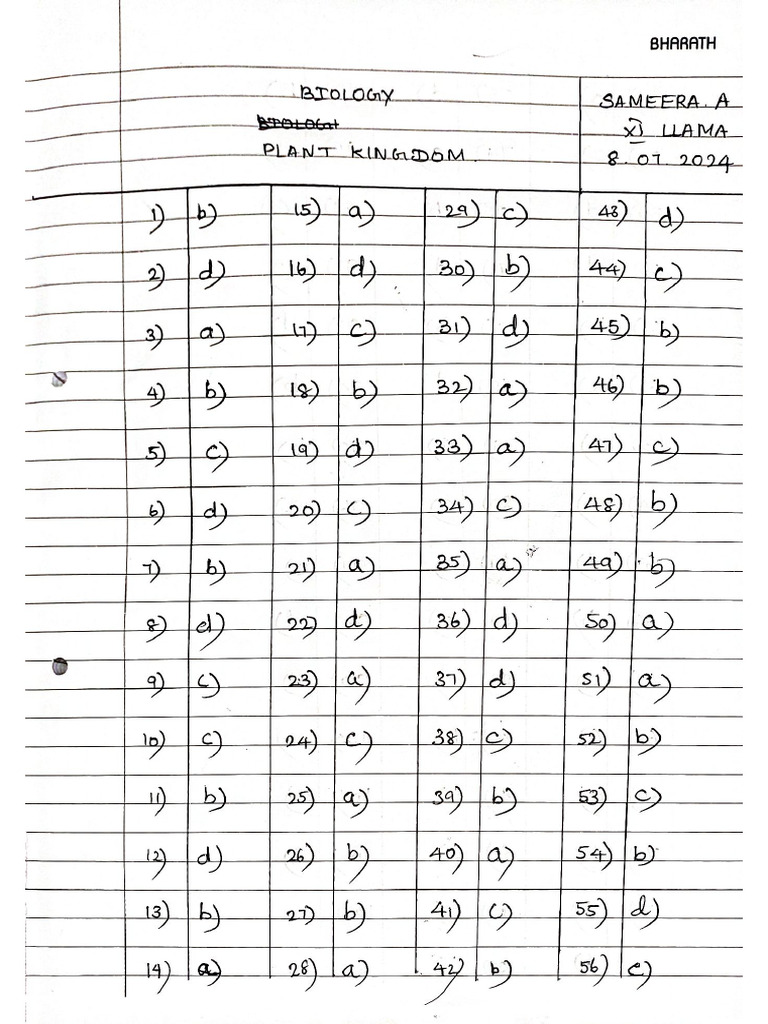 BHARATH
BIOLOGY
SAMEERA. A
XI LLAMA
PLANT KINGDOM.
8.07.2024
1) b) 15) a) 29) c) 43) d)
2) d) 16) d) 30) b) 44) c)
3) a) 17) c) 31) d) 45) b)
4) b) 18) b) 32) a) 46) b)
5) c) 19) d) 33) a) 47) c)
6) d) 20) c) 34) c) 48) b)
7) b) 21) a) 35) a) 49) b)
8) d) 22) d) 36) d) 50) a)
9) c) 23) a) 37) d) 51) a)
10) c) 24) c) 38) c) 52) b)
11) b) 25) a) 39) b) 53) c)
12) d) 26) b) 40) a) 54) b)
13) b) 27) b) 41) c) 55) d)
14) a) 28) a) 42) b) 56) c)